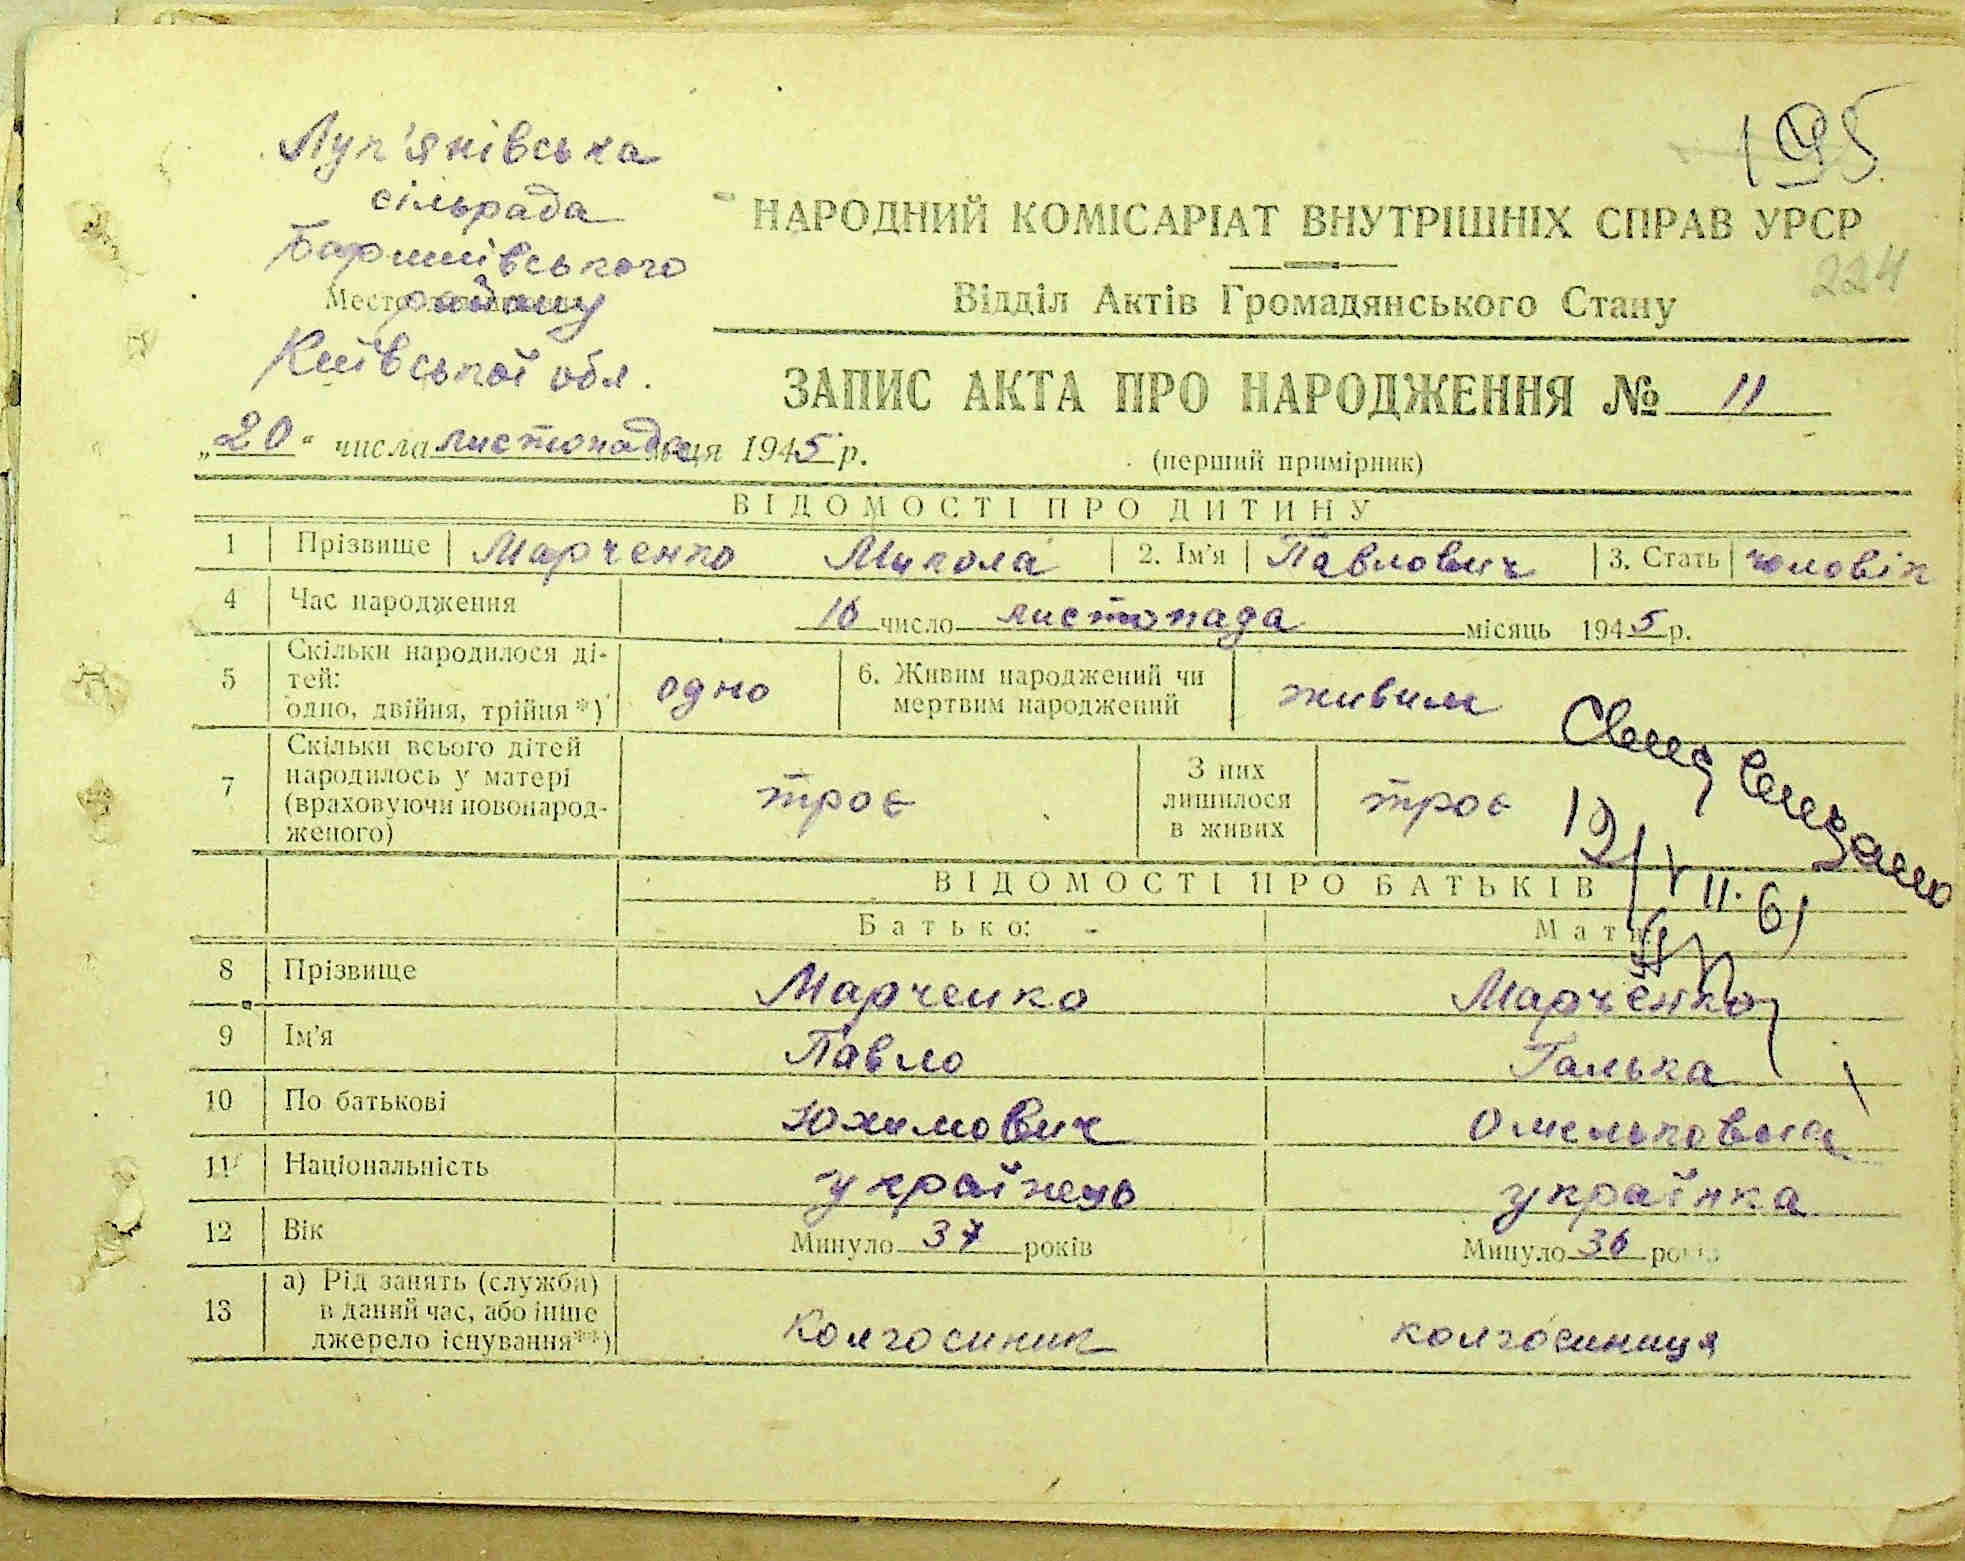 195
Луп'янівська
сільрада
Баришівського
району
Київської обл.
НАРОДНИЙ КОМІСАРІАТ ВНУТРІШНІХ СПРАВ УРСР
224
Відділ Актів Громадянського Стану
ЗАПИС АКТА ПРО НАРОДЖЕННЯ № 11
„20“ числа листопада місяця 1945 р.
(перший примірник)
ВІДОМОСТІ ПРО ДИТИНУ
1 Прізвище Марченко Микола 2. Ім'я Павлович 3. Стать чоловік
4 Час народження 16 число листопада місяць 1945 р.
5 Скільки народилося ді-
тей:
одно, двійня, трійня *)
одно
6. Живим народжений чи
мертвим народжений
живим
7 Скільки всього дітей
народилось у матері
(враховуючи новонарод-
женого)
троє
З них
лишилося
в живих
троє
12/VII.61
ВІДОМОСТІ ПРО БАТЬКІВ
Батько: Мати
8 Прізвище Марченко Марченко
9 Ім'я Павло Галька
10 По батькові Юхимович Омельковна
11 Національність українець українка
12 Вік Минуло 37 років Минуло 36 років
13 а) Рід занять (служби)
в даний час, або інше
джерело існування**)
Колгоспник колгоспниця